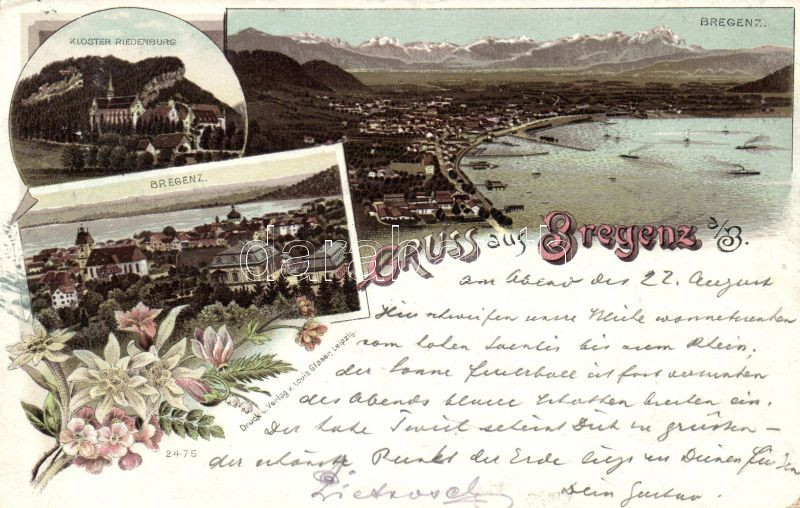 KLOSTER RIEDENBURG
BREGENZ.
BREGENZ.
GRUSS aus Bregenz a/B.
am Abend des 22. August
Hier schweifen unsre Blicke wonnetrunken
vom hohen Säntis bis zum Rhein,
der Sonne Feuerball ist fast versunken
des Abends blaue Schatten breiten ein.
Der hohe Säntis scheint Dich zu grüssen –
der schönste Punkt der Erde liegt zu Deinen Füssen
Dein Gustav
Druck u. Verlag v. Louis Glaser, Leipzig.
2475
darabanth